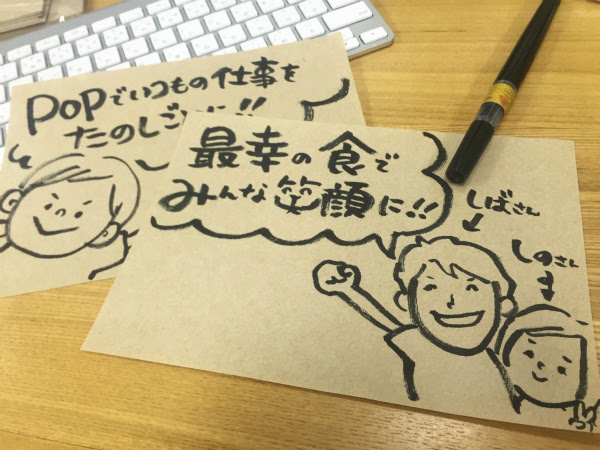 POPでいつもの仕事を
たのしご
!!
最幸の食で
みんな笑顔に!!
しばさん
しのさん